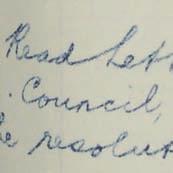 Read Let
. Council,
e resolut